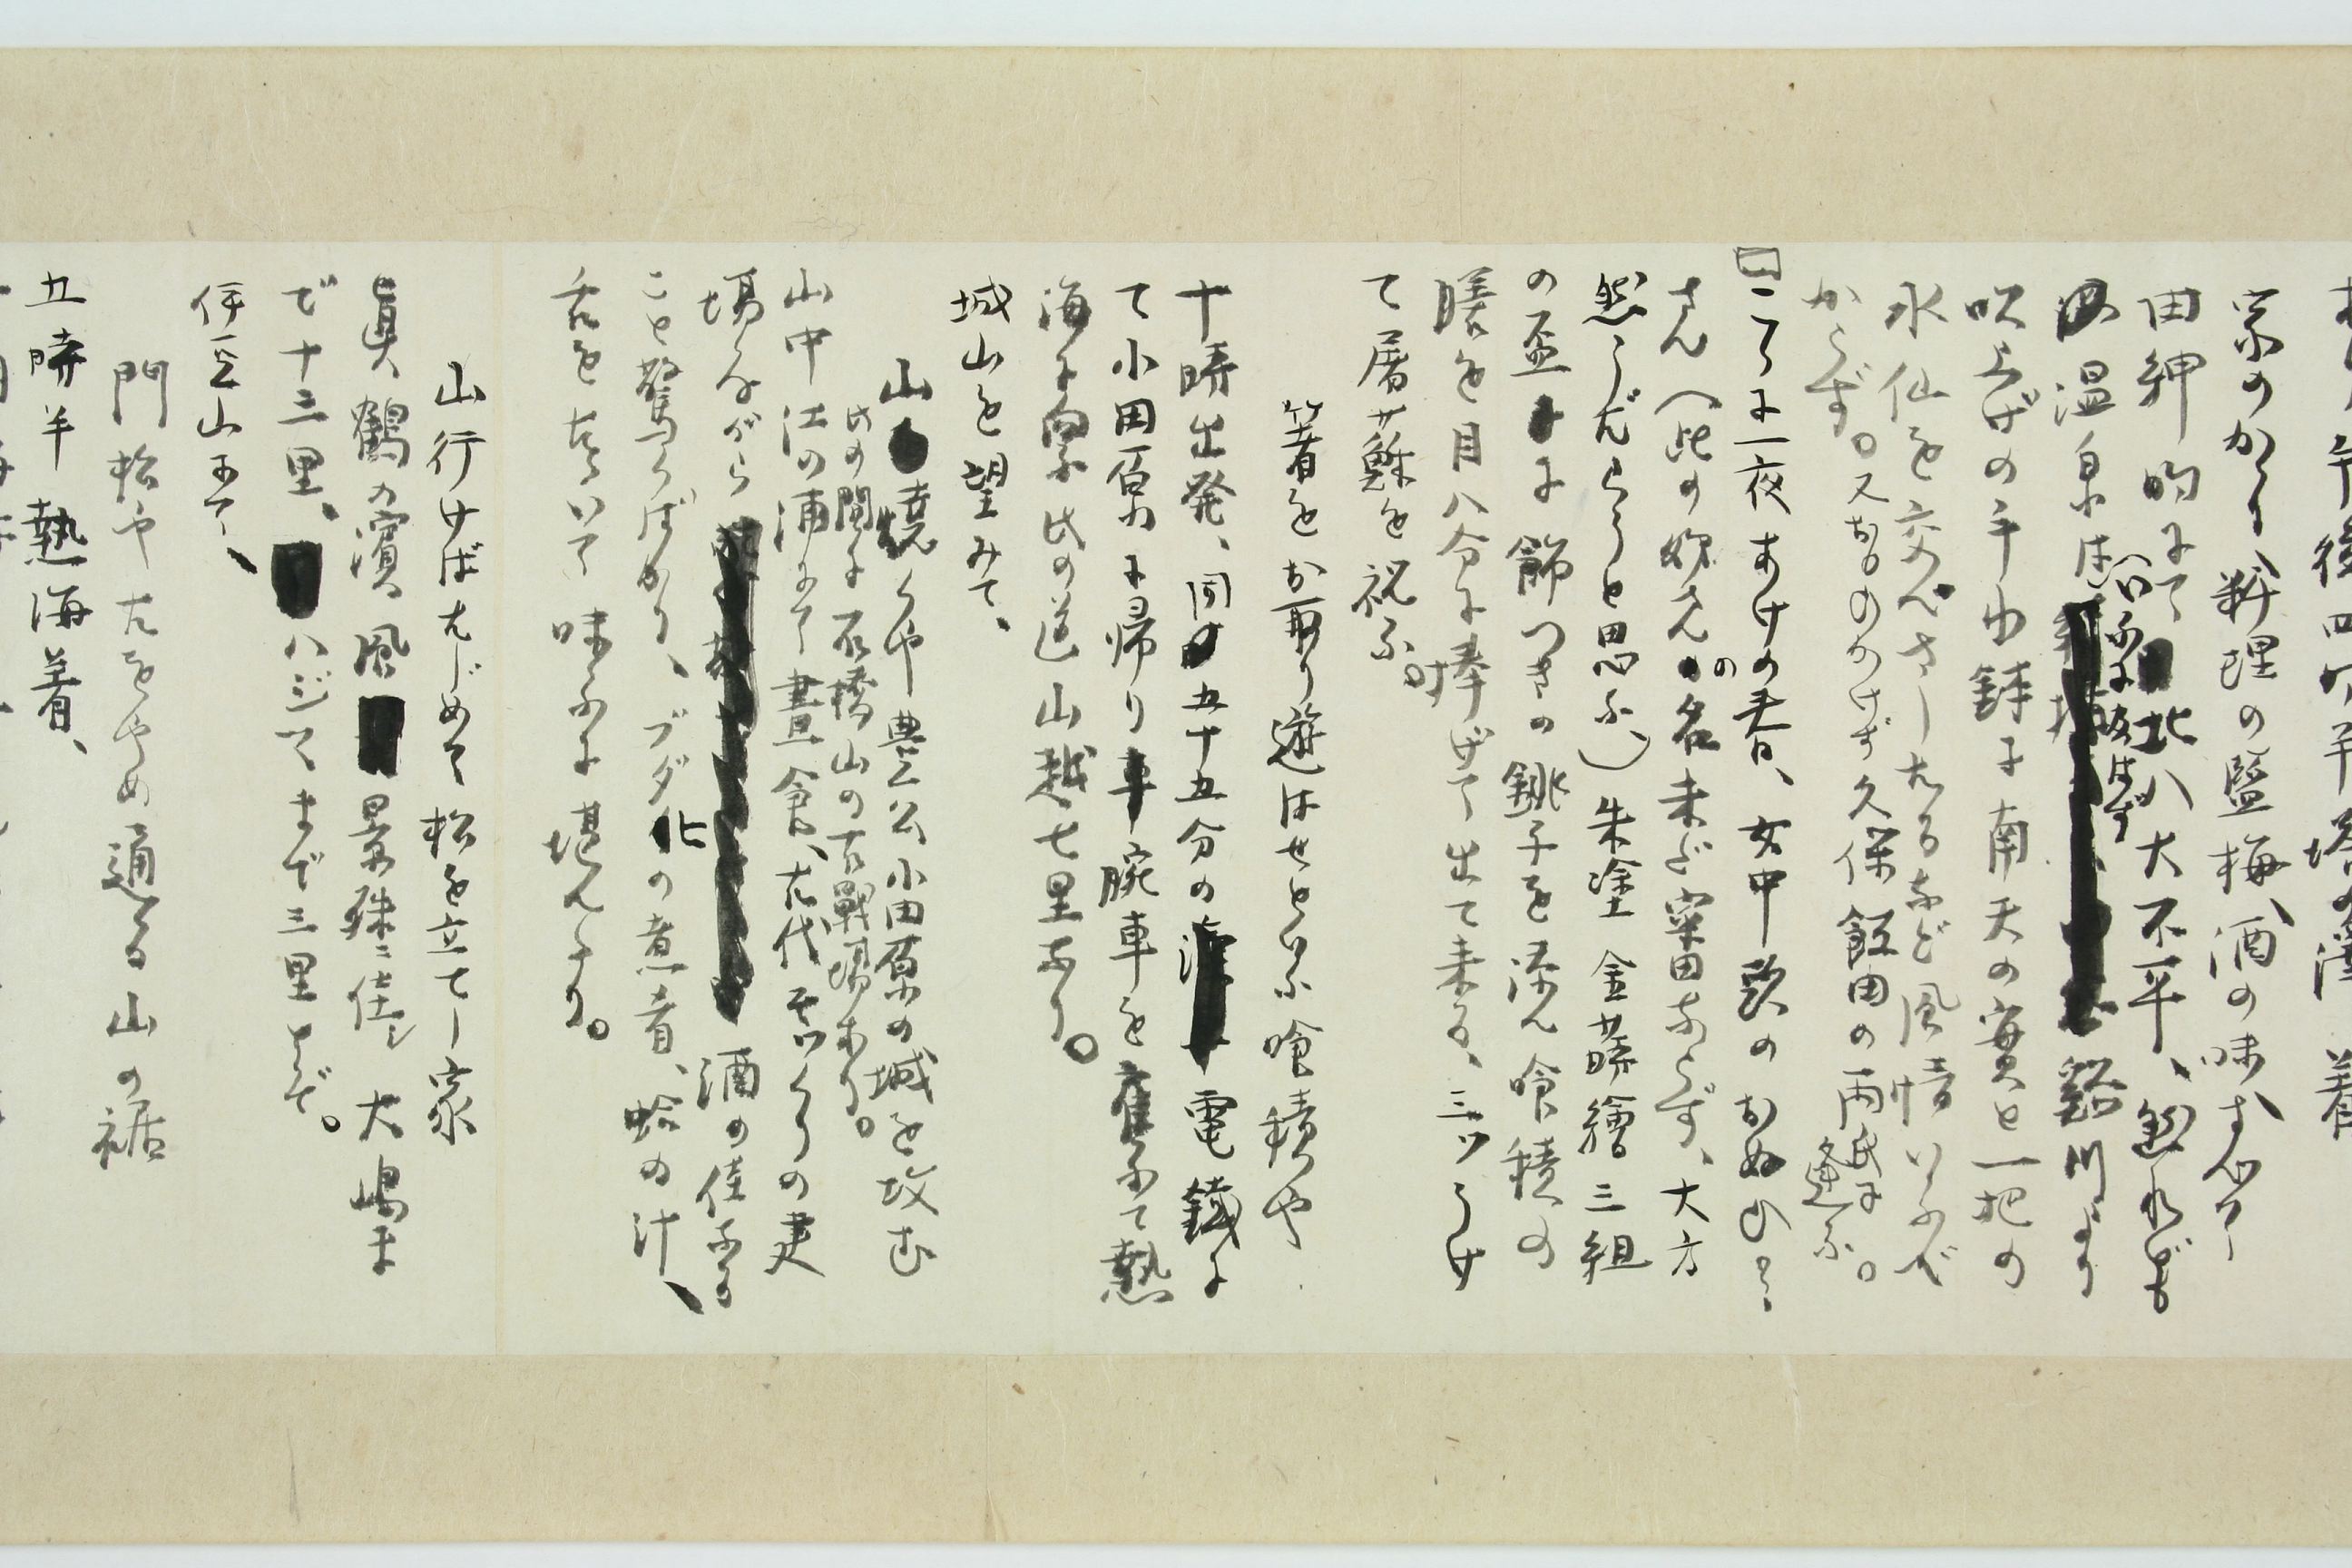 午後四時半塔の澤 着
家のかゝり、料理の塩梅、酒の味すべて
田紳的にて北八大不平、
(口に入るに及ばず)
温泉は 谿川より
吹上げの手水鉢に南天の實と一把の
水仙を交ぜさしたるなど風情いふべ
からず。又おものかげず久保飯田の両氏に逢ふ。
こゝに一夜あけの春、女中頭のおぬひ
さん(此の妓さんの名未ださだかならず、大方
然うだらうと思ふ)朱塗金蒔繪三組
の盃に飾つきの銚子を添へ喰積の
膳を目八分に捧げて出て来る、三ツうけ
て屠蘇を祝ふ。
箸をお取り遊ばせといふ喰積や
十時出発、同五十五分の電鐵に
て小田原に帰り腕車を雇ふて熱
海に向ふ此の道山越七里なり。
城山を望みて、
山焼くや豊公小田原の城を攻む
此の間に石橋山の古戰場あり。
山中江の浦にて晝食、古代そつくりの建
場ながら 酒の佳なる
こと驚くばかり、ブダ化の煮肴、蛤の汁、
舌をたゝいて味ふに堪へたり。
山行けばはじめて松を立てし家
眞鶴の濱風景殊に佳し、大嶋ま
で十三里、ハジマまで三里とぞ。
伊豆山にて、
門松やたをやめ通る山の裾
五時半 熱海着、